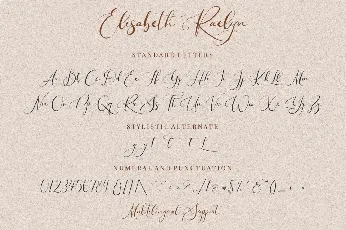 Elisabeth Raelyn
STANDARD LETTERS
Aa Bb Cc Dd Ee Ff Gg Hh Ii Jj Kk Ll Mm
Nn Oo Pp Qq Rr Ss Tt Uu Vv Ww Xx Yy Zz
STYLISTIC ALTERNATE
NUMERAL AND PUNCTUATION
0123456789
Multilingual Support